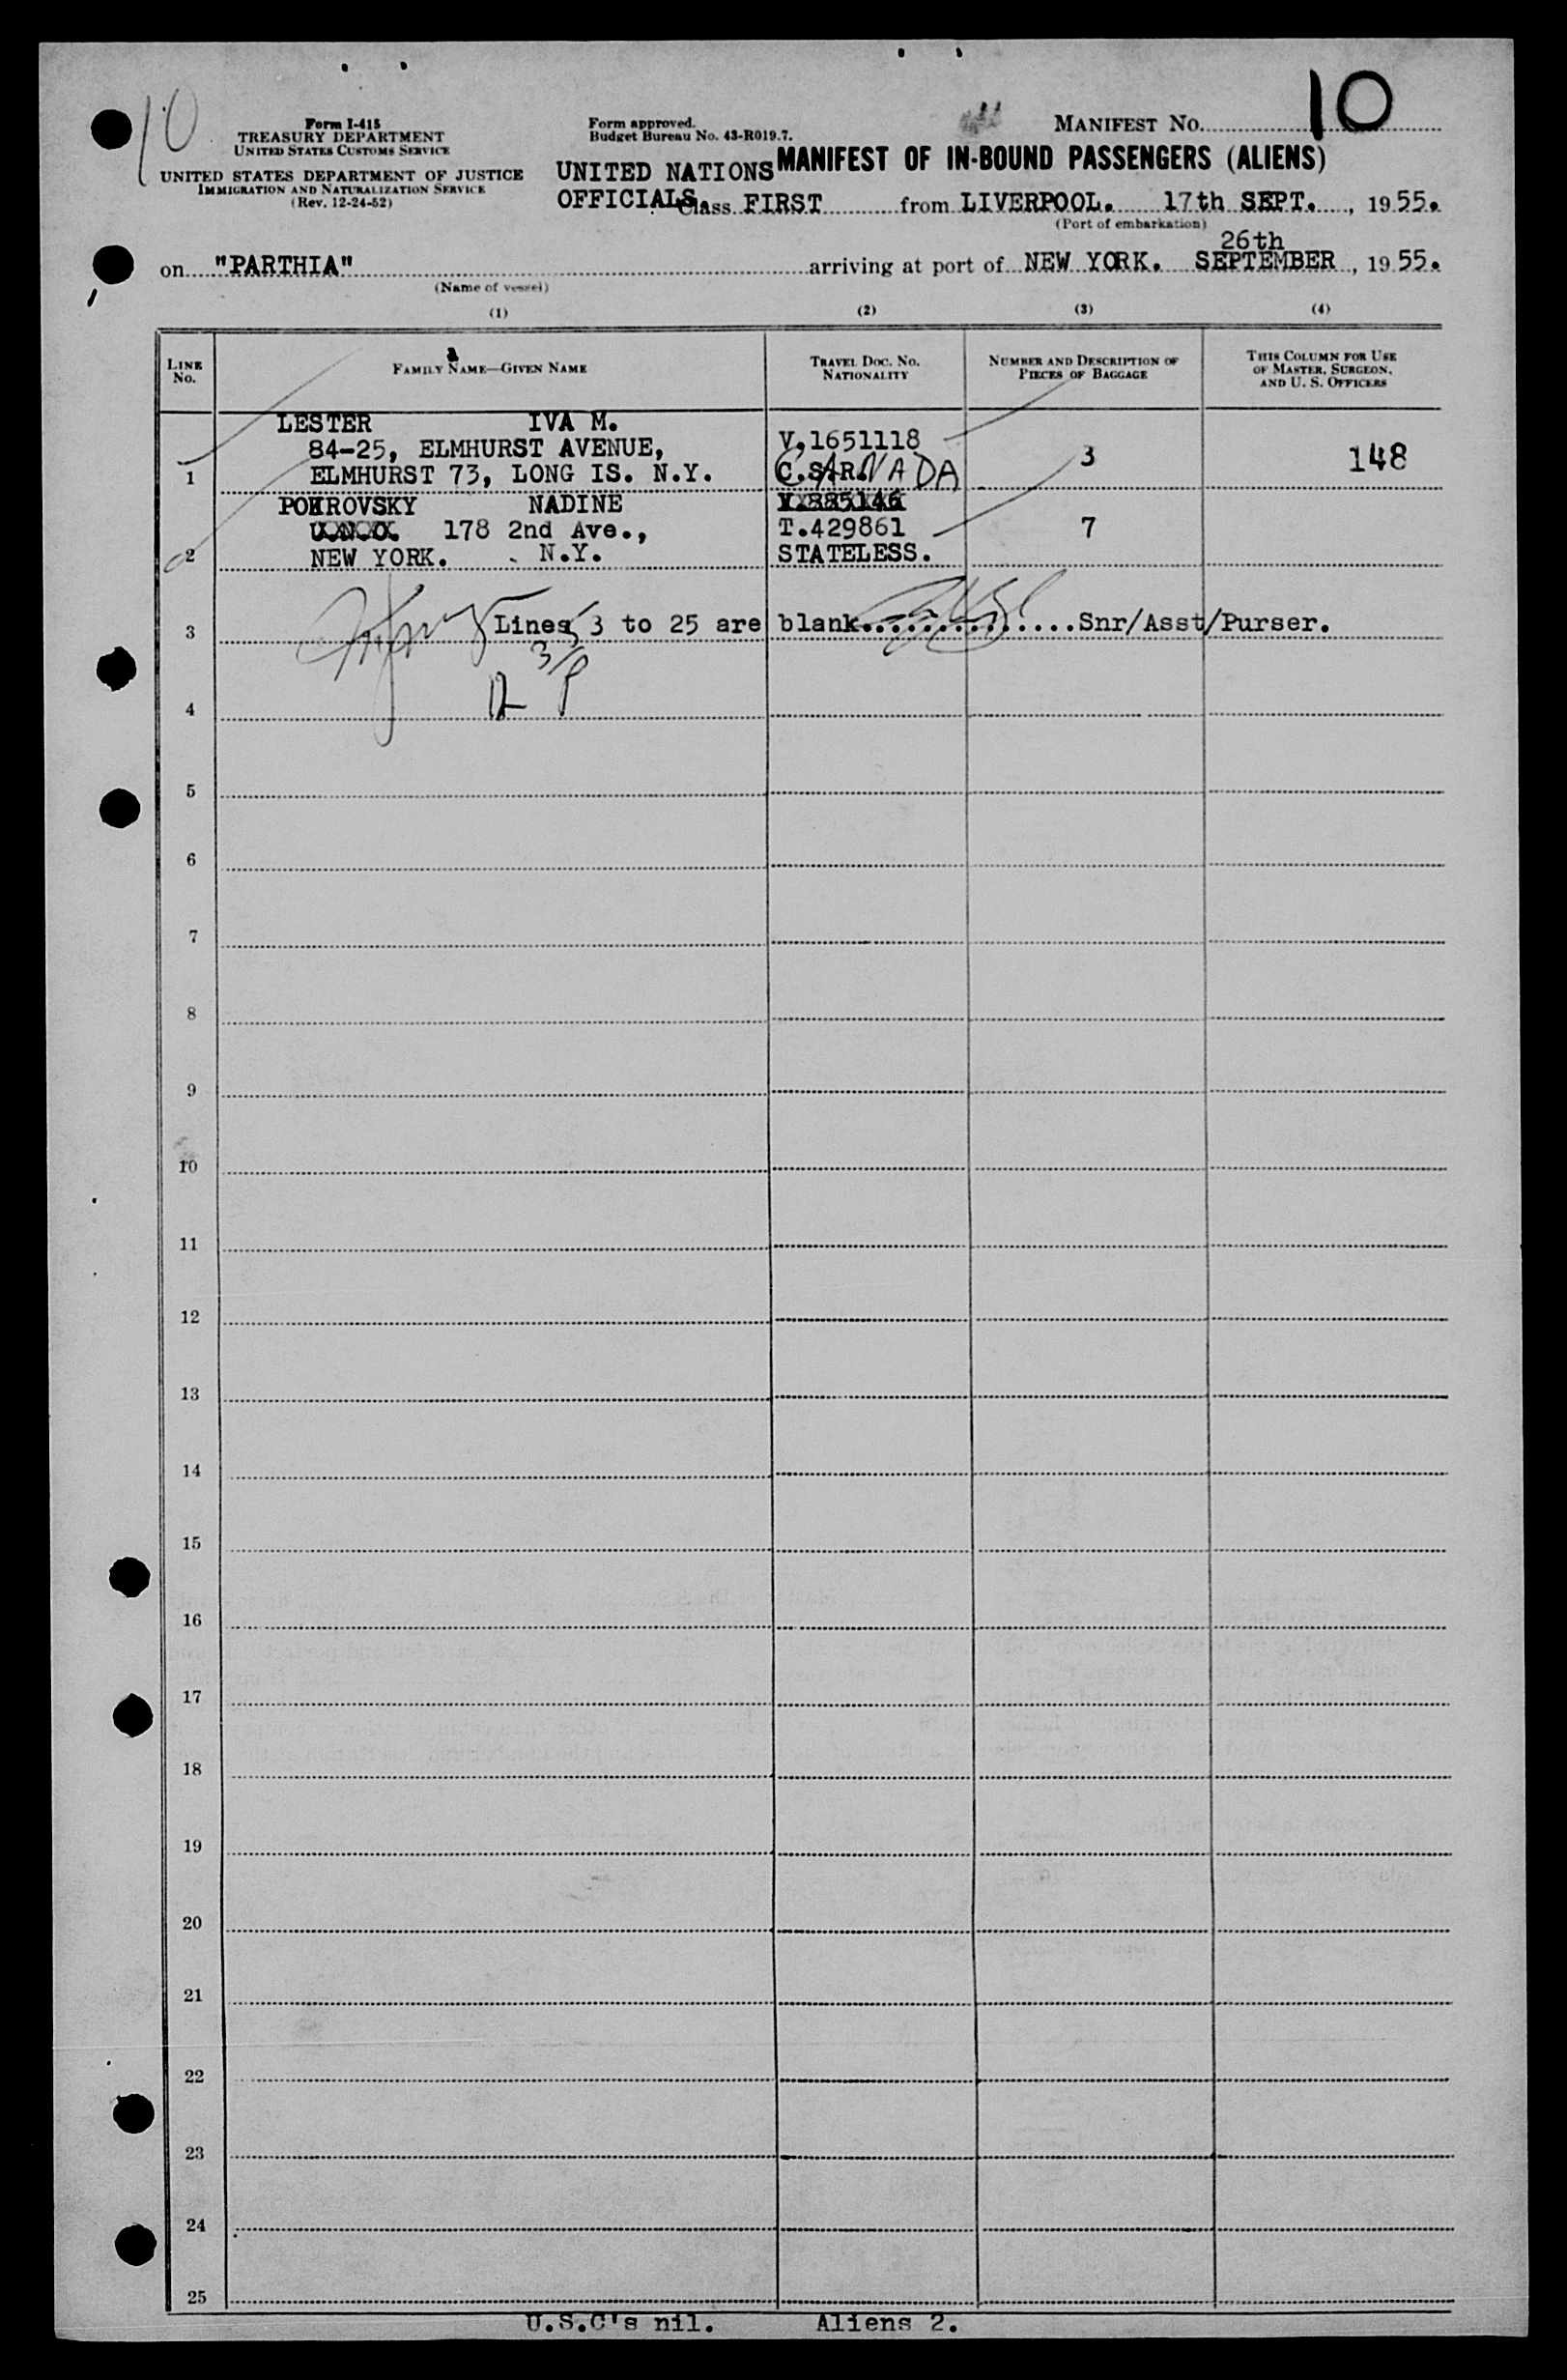 10
10
Form I-415
TREASURY DEPARTMENT
UNITED STATES CUSTOMS SERVICE
UNITED STATES DEPARTMENT OF JUSTICE
IMMIGRATION AND NATURALIZATION SERVICE
(Rev. 12-24-52)
Form approved.
Budget Bureau No. 43-R019.7.
MANIFEST No.
UNITED NATIONS MANIFEST OF IN-BOUND PASSENGERS (ALIENS)
OFFICIALS. Class FIRST from LIVERPOOL. 17th SEPT., 1955.
(Port of embarkation)
26th
on "PARTHIA" arriving at port of NEW YORK. SEPTEMBER, 1955.
(Name of vessel)
(1) (2) (3) (4)
LINE No.
FAMILY NAME—GIVEN NAME
TRAVEL DOC. No. NATIONALITY
NUMBER AND DESCRIPTION OF PIECES OF BAGGAGE
THIS COLUMN FOR USE OF MASTER, SURGEON, AND U. S. OFFICERS
LESTER IVA M.
84-25, ELMHURST AVENUE, V.1651118
1 ELMHURST 73, LONG IS. N.Y. CANADA 3 148
POKROVSKY NADINE V.885146
U.N.O. 178 2nd Ave., T.429861 7
2 NEW YORK. N.Y. STATELESS.
3 Lines 3 to 25 are blank..............Snr/Asst/Purser.
4
5
6
7
8
9
10
11
12
13
14
15
16
17
18
19
20
21
22
23
24
25
U.S.C's nil. Aliens 2.